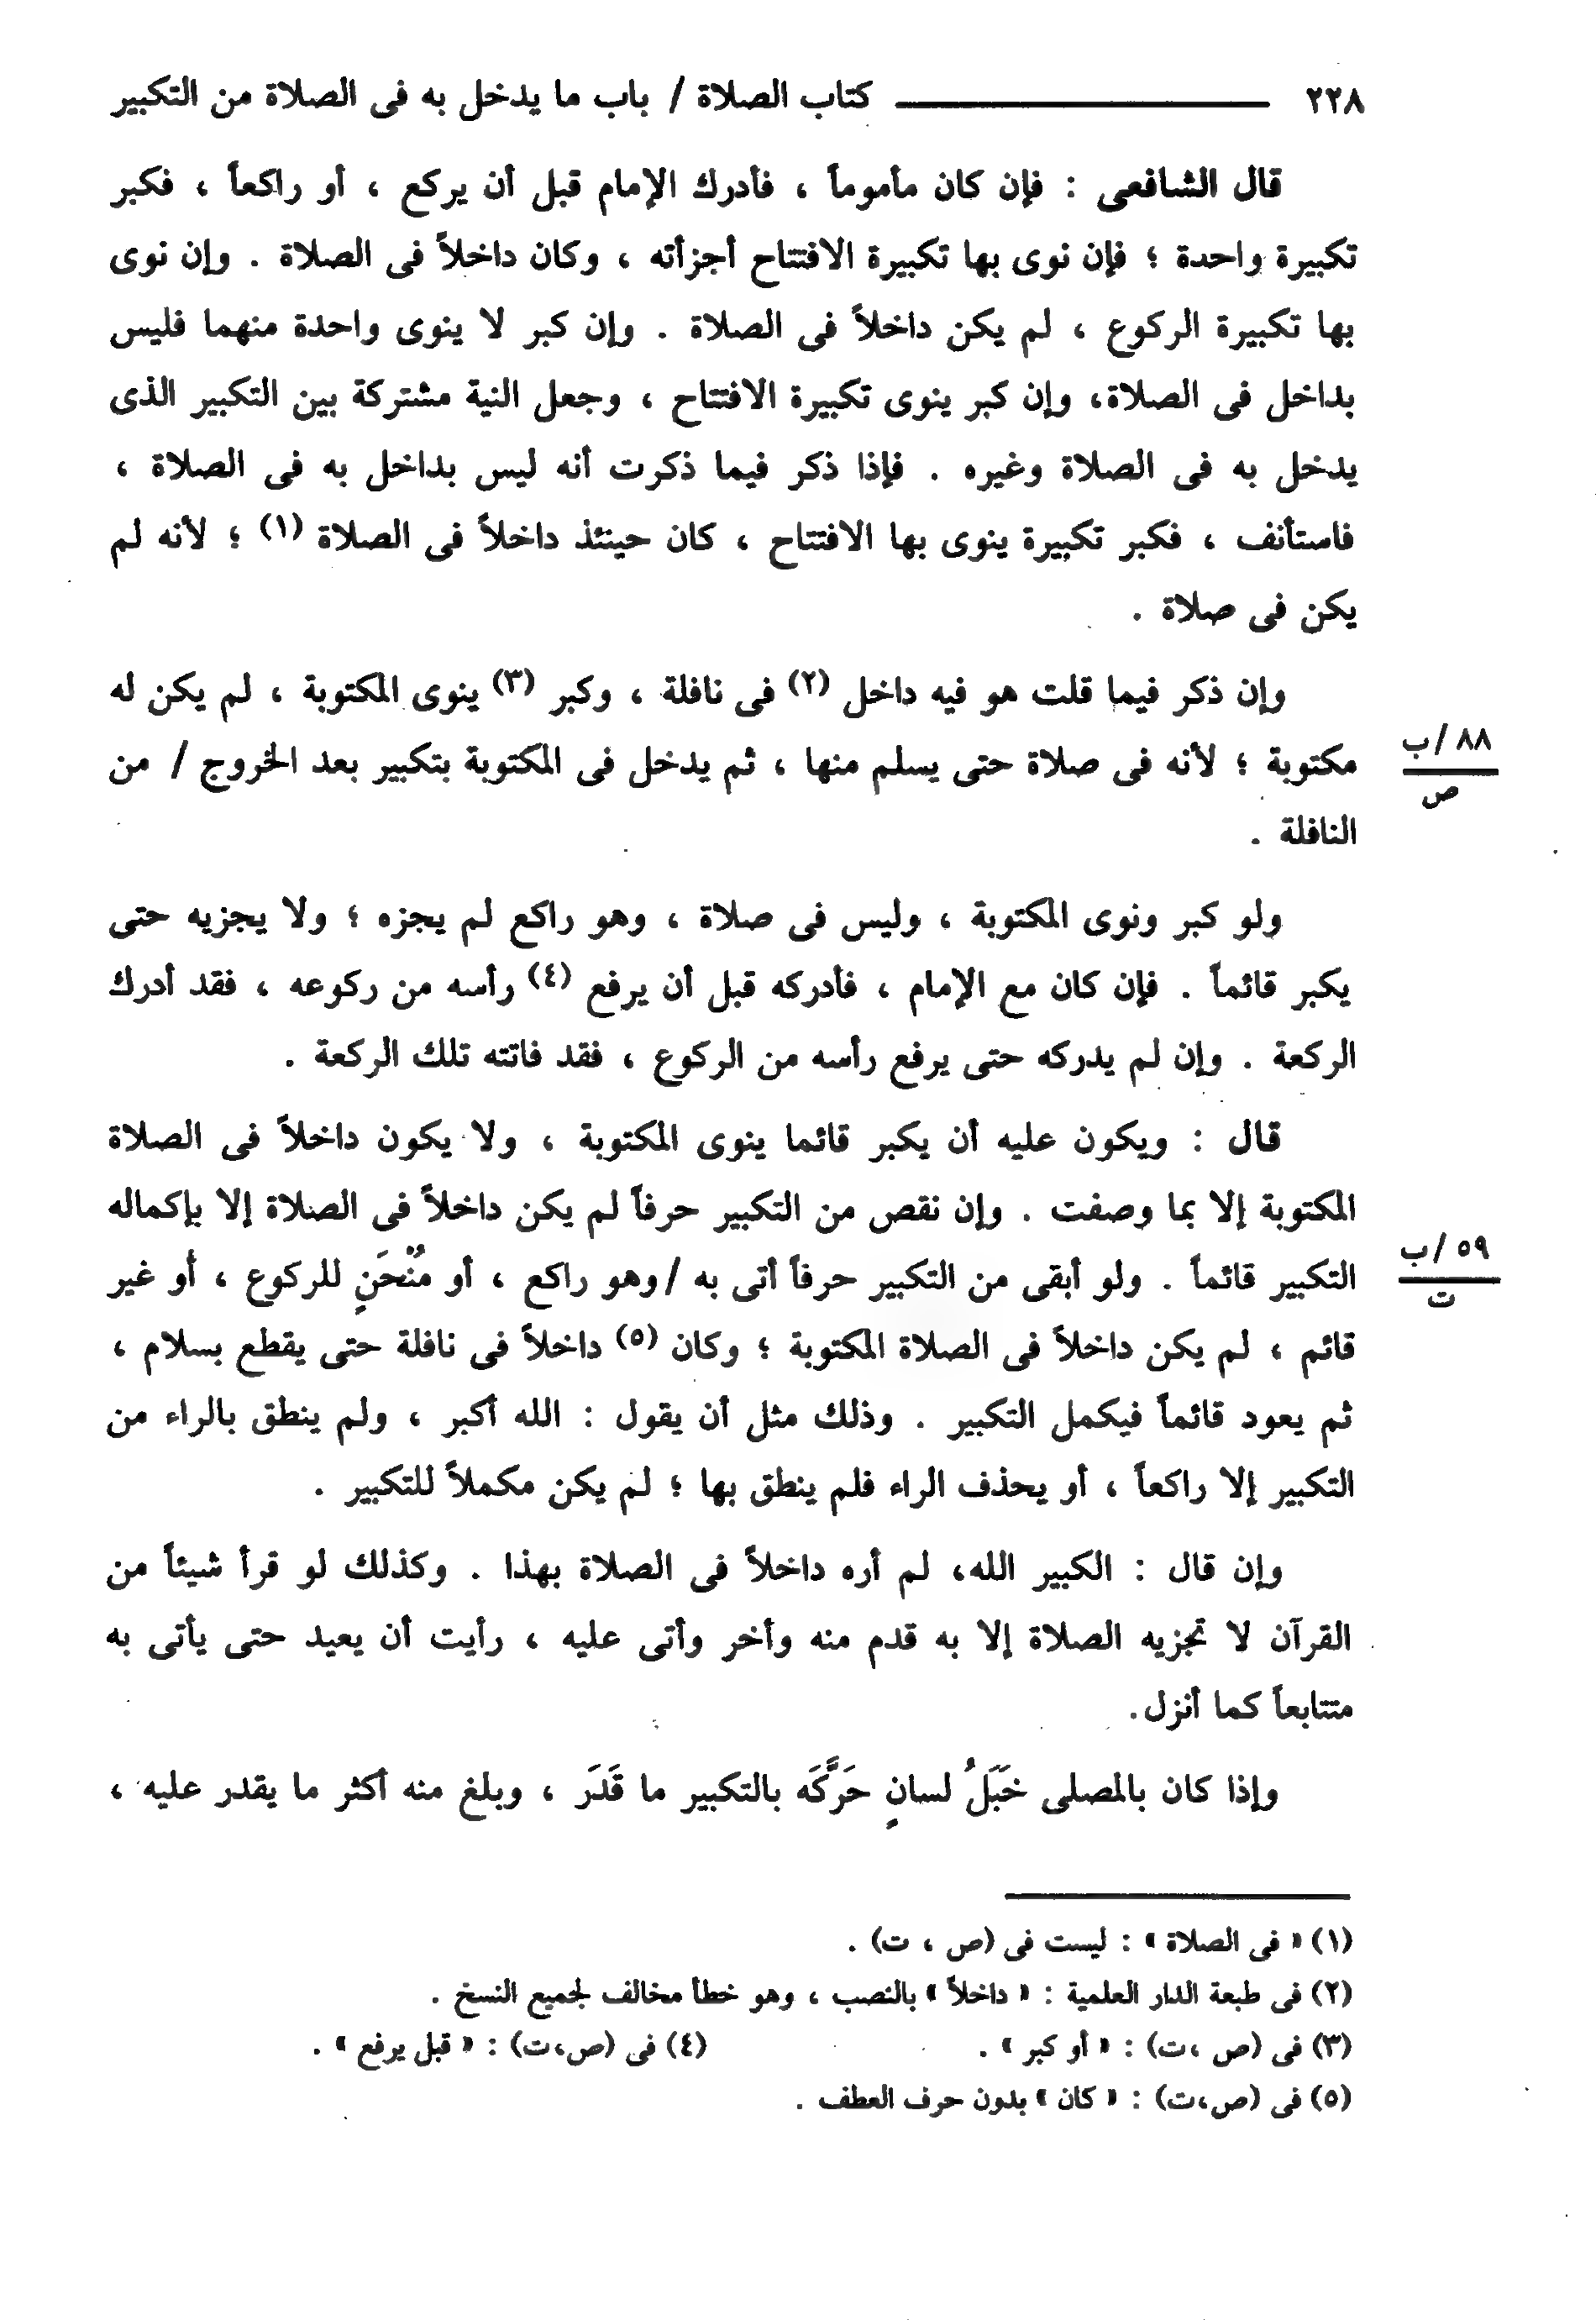 ٢٢٨ كتاب الصلاة / باب ما يدخل به فى الصلاة من التكبير
قال الشافعى : فإن كان مأموماً ، فأدرك الإمام قبل أن يركع ، أو راكعاً ، فكبر
تكبيرة واحدة ؛ فإن نوى بها تكبيرة الافتتاح أجزأته ، وكان داخلاً فى الصلاة . وإن نوى
بها تكبيرة الركوع ، لم يكن داخلاً فى الصلاة . وإن كبر لا ينوى واحدة منهما فليس
بداخل فى الصلاة، وإن كبر ينوى تكبيرة الافتتاح ، وجعل النية مشتركة بين التكبير الذى
يدخل به فى الصلاة وغيره . فإذا ذكر فيما ذكرت أنه ليس بداخل به فى الصلاة ،
فاستأنف ، فكبر تكبيرة ينوى بها الافتتاح ، كان حينئذ داخلاً فى الصلاة (١) ؛ لأنه لم
يكن فى صلاة .
وإن ذكر فيما قلت هو فيه داخل (٢) فى نافلة ، وكبر (٣) ينوى المكتوبة ، لم يكن له
مكتوبة ؛ لأنه فى صلاة حتى يسلم منها ، ثم يدخل فى المكتوبة بتكبير بعد الخروج / من
٨٨ /ب
ص
النافلة .
ولو كبر ونوى المكتوبة ، وليس فى صلاة ، وهو راكع لم يجزه ؛ ولا يجزيه حتى
يكبر قائماً . فإن كان مع الإمام ، فأدركه قبل أن يرفع (٤) رأسه من ركوعه ، فقد أدرك
الركعة . وإن لم يدركه حتى يرفع رأسه من الركوع ، فقد فاتته تلك الركعة .
قال : ويكون عليه أن يكبر قائما ينوى المكتوبة ، ولا يكون داخلاً فى الصلاة
المكتوبة إلا بما وصفت . وإن نقص من التكبير حرفاً لم يكن داخلاً فى الصلاة إلا بإكماله
التكبير قائماً . ولو أبقى من التكبير حرفاً أتى به / وهو راكع ، أو مُنْحَنٍ للركوع ، أو غير
٥٩ /ب
ت
قائم ، لم يكن داخلاً فى الصلاة المكتوبة ؛ وكان (٥) داخلاً فى نافلة حتى يقطع بسلام ،
ثم يعود قائماً فيكمل التكبير . وذلك مثل أن يقول : الله أكبر ، ولم ينطق بالراء من
التكبير إلا راكعاً ، أو يحذف الراء فلم ينطق بها ؛ لم يكن مكملاً للتكبير .
وإن قال : الكبير الله، لم أره داخلاً فى الصلاة بهذا . وكذلك لو قرأ شيئاً من
القرآن لا تجزيه الصلاة إلا به قدم منه وأخر وأتى عليه ، رأيت أن يعيد حتى يأتى به
متتابعاً كما أنزل.
وإذا كان بالمصلى خَبَلُ لسانٍ حَرَّكَه بالتكبير ما قَدَرَ ، وبلغ منه أكثر ما يقدر عليه ،
(١) « فى الصلاة » : ليست فى (ص ، ت) .
(٢) فى طبعة الدار العلمية : « داخلاً » بالنصب ، وهو خطأ مخالف لجميع النسخ .
(٣) فى (ص ،ت) : « أو كبر » . (٤) فى (ص،ت) : « قبل يرفع » .
(٥) فى (ص،ت) : « كان » بدون حرف العطف .